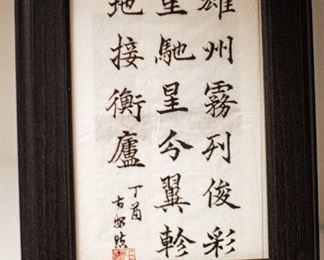 雄州霧列俊彩
星馳星分翼軫
地接衡廬
丁酉